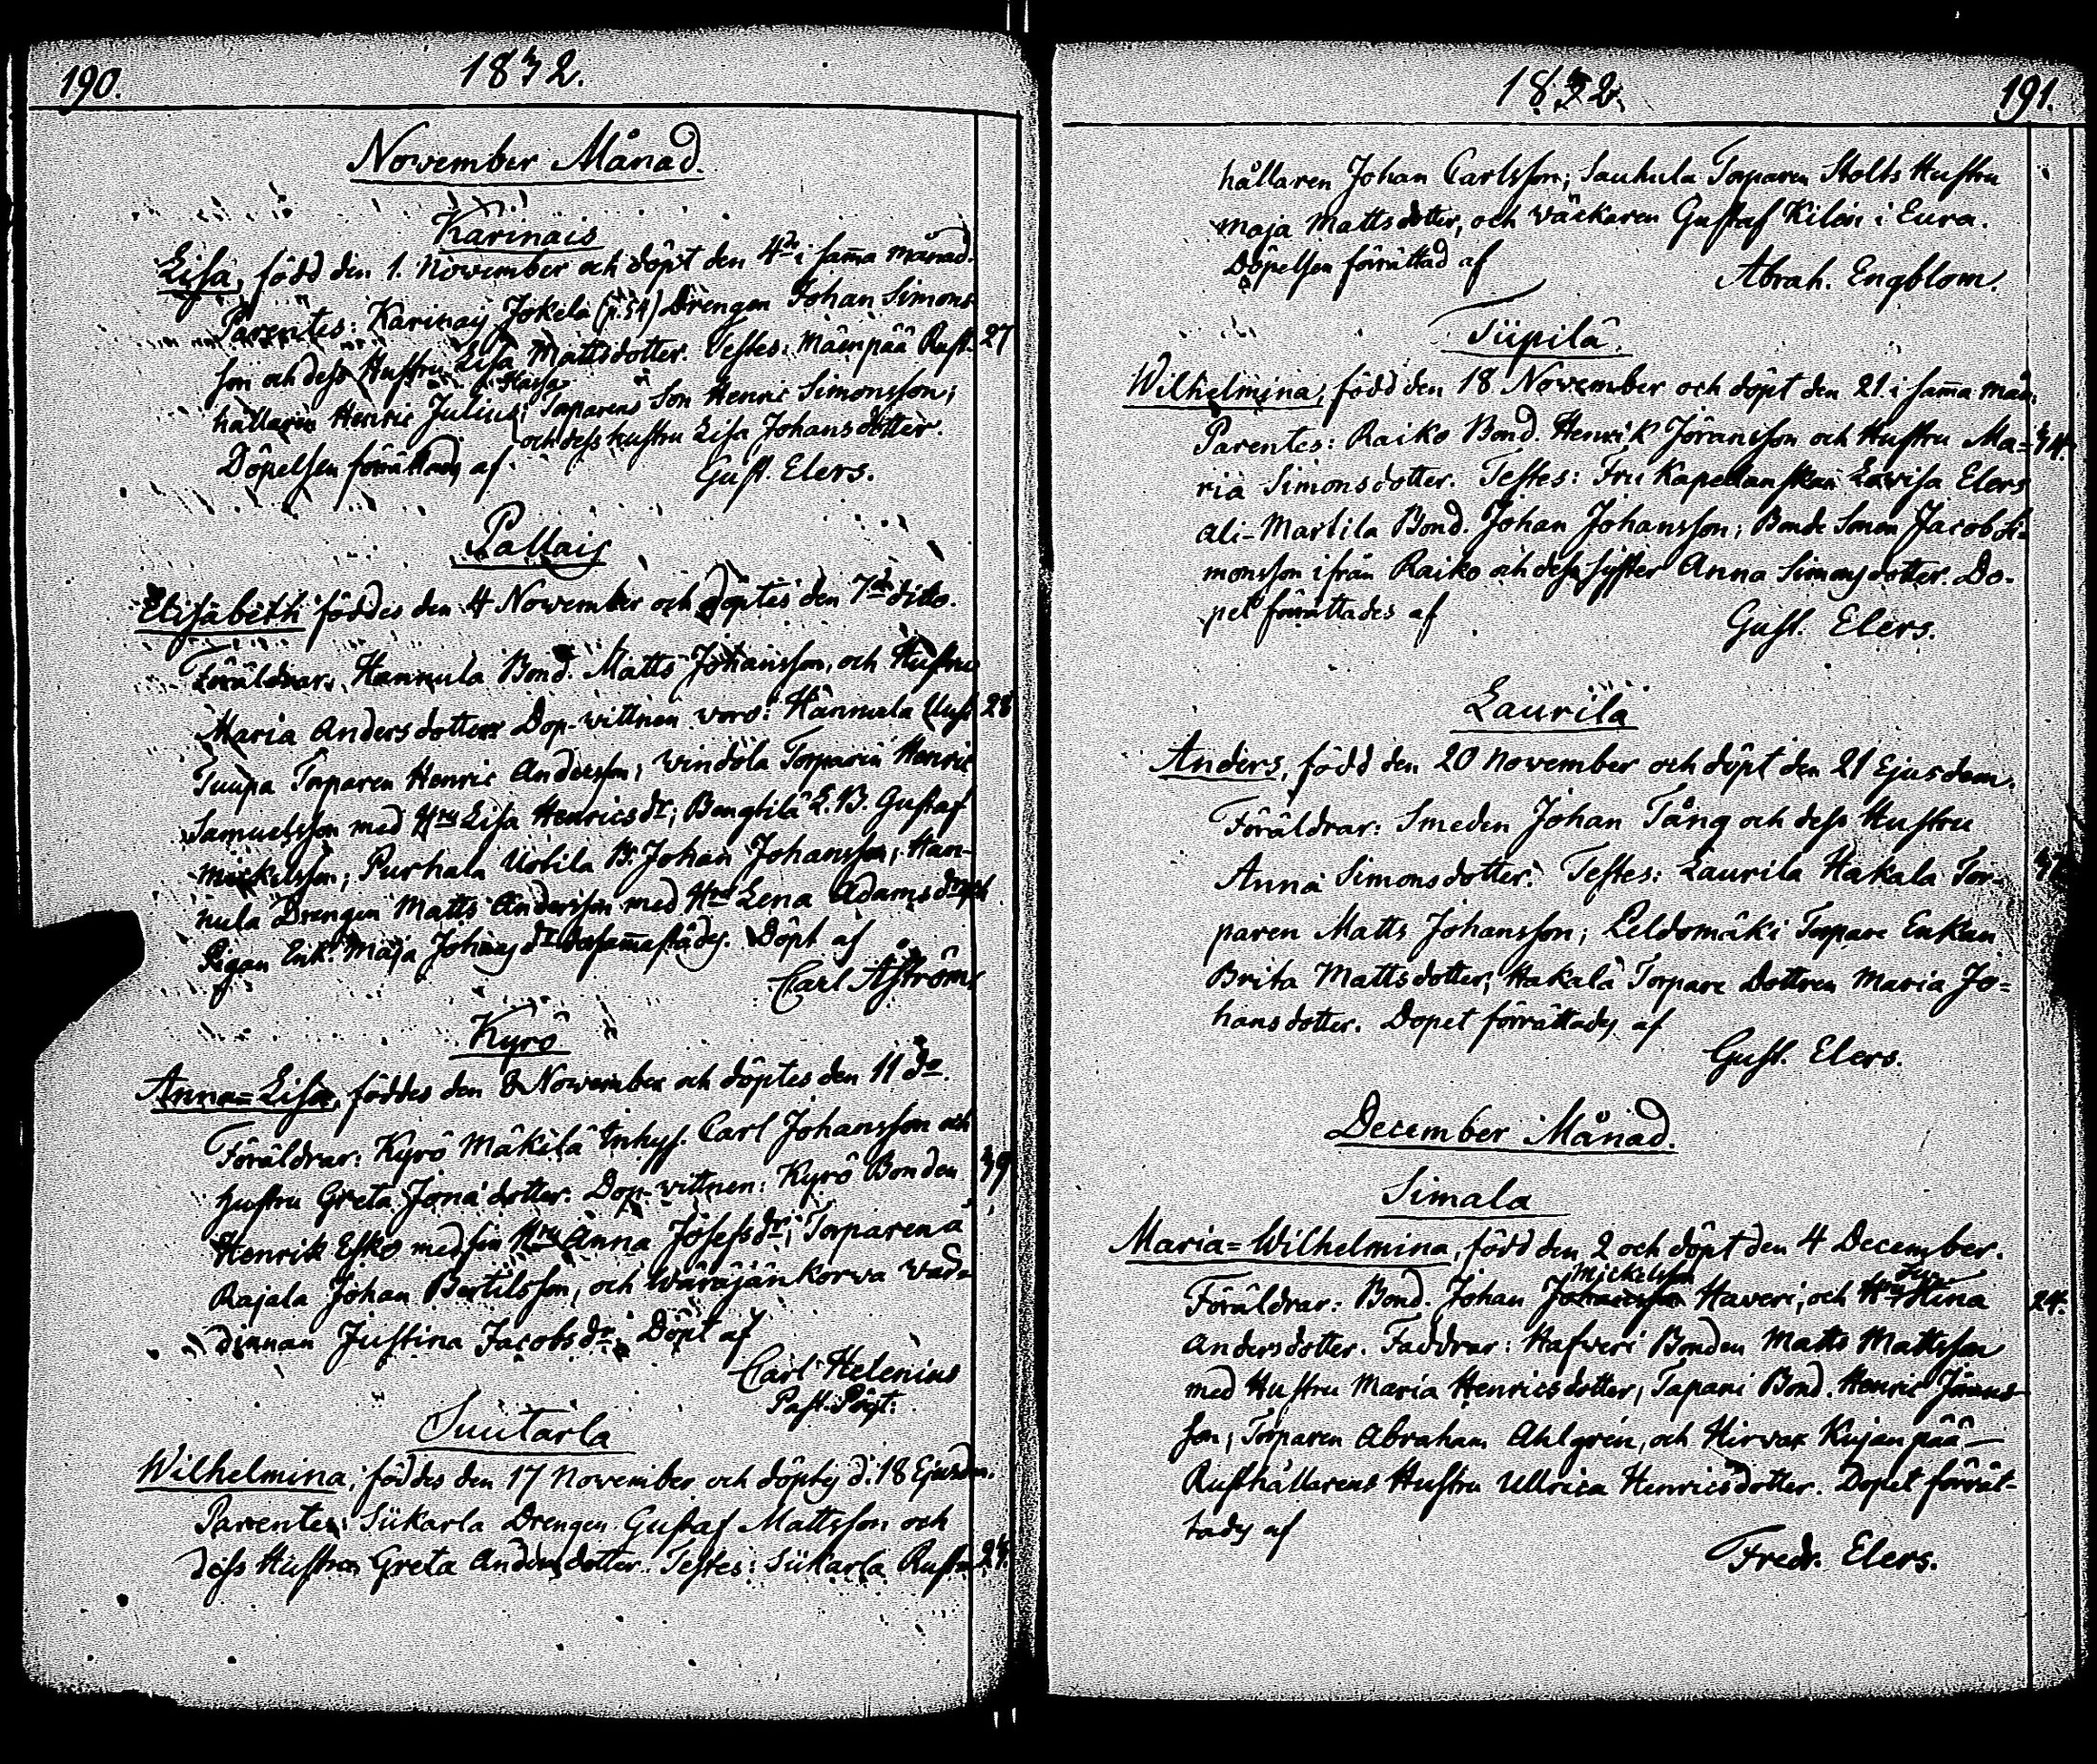 190.
1832.
November Månad.
Karinais
Lisa, född den 1. November och döpt den 4de i sam̄a månad.
Parentes: Karinais Jokela (p. 54) Drengen Johan Simons-
son och dess Hustru Lisa Mattsdotter. Testes: Mäenpää Rust- 27
hållaren Henric Julius; Torparens Son Henric Simonsson;
och dess hustru Lisa Johansdotter.
Döpelsen förrättades af
Gust. Elers.
Pallais
Elisabeth föddes den 4 November och döptes den 7de dito.
Föräldrar: Hannula Bond. Matts Johansson, och Hustru
Maria Andersdotter Dop-vittnen voro: Hannula 28
Tuupa Torparen Henric Andersson; Windola Torparen Henric
Samuelsson med Hru Lisa Henricsdr; Bengtilä L. B. Gustaf
Mickelsson; Purhala Uotila B. Johan Johansson; Han-
nula Drengen Matts Andersson med Hru Lena Adamsdr och
Pigan Enk. Maja Johansdr dersam̄astädes. Döpt af
Carl Aström
Kyrö
Anna=Lisa, föddes den 8 November och döptes den 11 do.
Föräldrar: Kyrö Mäkilä Inhys. Carl Johansson och
hustru Greta Jona'dotter. Dop-vittnen: Kyrö Bonden 39
Henrik Esko med sin Hru Anna Josefsdr; Torparena
Rajala Johan Bertilsson, och Wäräjänkorwa Wär-
dinnan Justina Jacobsdr. Döpt af
Carl Helenius
Past. Pögt:
Suutarla
Wilhelmina, föddes den 17 November och döptes d. 18 Ejusdem.
Parentes: Siikarla Drengen Gustaf Mattsson och
dess Hustru Greta Andersdotter. Testes: Siikarla Rust-
1832.
191.
hållaren Johan Carlsson; Sauhula Torparen Stolts Hustru
Maja Mattsdotter, och Wäckaren Gustaf Kilén i Eura.
Döpelsen förrättad af
Abrah. Engblom.
Tiipilä
Wilhelmina, född den 18 November och döpt den 21. i sam̄a mån.
Parentes: Raiko Bond. Henrik Jöranisson och Hustru Ma= 34.
ria Simonsdotter. Testes: Fru Kapellanskan Lovisa Elers
Ali-Marlila Bond. Johan Johansson; Bonde Sonen Jacob Si-
monsson ifrån Raiko och dess syster Anna Simonsdotter. Do-
pet förrättades af
Gust. Elers.
Laurila
Anders, född den 20 November och döpt den 21 Ejusdem.
Föräldrar: Smeden Johan Tång och dess Hustru
Anna Simonsdotter. Testes: Laurila Hakala Tor-
paren Matts Johansson; Peldomäki Torpare Enkan
Brita Mattsdotter; Hakala Torpare Dottren Maria Jo=
hansdotter. Dopet förrättades af
Gust. Elers.
December Månad.
Simala
Maria=Wilhelmina, född den 2 och döpt den 4 December.
Mickelsson
Föräldrar: Bond. Johan Johansson Haveri, och Hru Stina 24.
Andersdotter. Faddrar: Hafweri Bonden Matts Mattsson
med Hustru Maria Henricsdotter; Tapani Bond. Henric Jörans-
son; Torparen Abraham Ahlgren, och Hirvax Kujanpää
Rusthållarens Hustru Ullrica Henricsdotter. Dopet förrät-
tades af
Fredr. Elers.